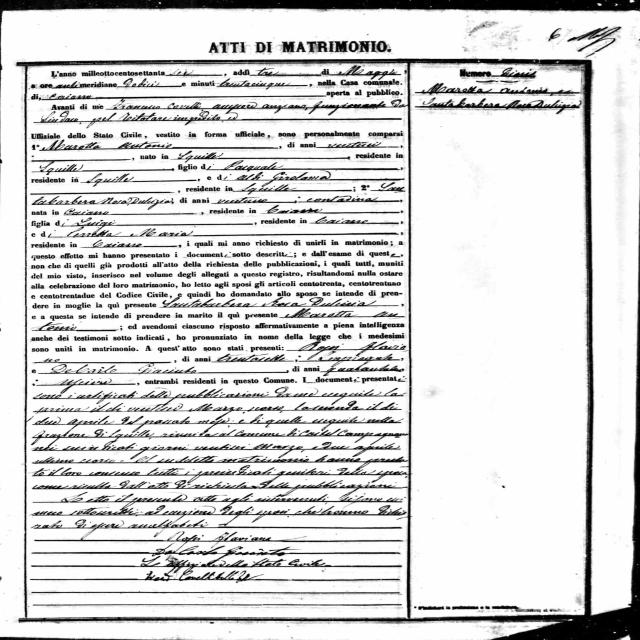 6
ATTI DI MATRIMONIO.
L'anno milleottocentosettanta sei, addì tre di Maggio
a ore antimeridiane Dodici e minuti trentacinque, nella Casa comunale
di Caiazzo aperta al pubblico.
Avanti di me Francesco Covelli assessore anziano, funzionante da
Sindaco, pel titolare impedito, ed
Uffiziale dello Stato Civile, vestito in forma ufficiale, sono personalmente comparsi
1° Marotta Antonio, di anni
, nato in Squille, residente in
Squille, figlio di Pasquale
residente in Squille, e di Girolama
, residente in Squille; 2° San
tabarbera Rosa Dulizia, di anni ventuno; contadina
nata in Caiazzo, residente in Caiazzo
figlia di Luigi, residente in Caiazzo
e di Maria
residente in Caiazzo, i quali mi anno richiesto di unirli in matrimonio; a
questo effetto mi hanno presentati i document sotto descritti; e dall'esame di quest
non che di quelli già prodotti all'atto della richiesta delle pubblicazioni, i quali tutti, muniti
del mio visto, inserisco nel volume degli allegati a questo registro, risultandomi nulla ostare
alla celebrazione del loro matrimonio, ho letto agli sposi gli articoli centotrenta, centotrentuno
e centotrentadue del Codice Civile, e quindi ho domandato allo sposo se intende di pren-
dere in moglie la quì presente Santabarbera Rosa Dulizia
e a questa se intende di prendere in marito il quì presente Marotta An
tonio; ed avendomi ciascuno risposto affermativamente a piena intelligenza
anche dei testimoni sotto indicati, ho pronunziato in nome della legge che i medesimi
sono uniti in matrimonio. A quest'atto sono stati presenti: Rossi Flavia
no, di anni trentasette,
e DeCarlo Giacinto, di anni quarantatre
Usciere, entrambi residenti in questo Comune. I document presentati
sono i certificati delle pubblicazioni da me eseguite la
prima il dì ventisei Marzo scorso, la seconda il dì
due Aprile del passato mese; e di quelle eseguite nella
frazione di Squille, riunita al Comune di Castel Campagnano
nei suindicati giorni ventisei Marzo, e due Aprile
ultimo scorso. Al suddetto matrimonio hanno presta
to il loro consenso tutti i genitori delli sposi
come risulta dall'atto di richiesta delle pubblicazioni
Letto il presente atto agli intervenuti, si sono me
meco sottoscritti, ad eccezione degli sposi, che hanno dichia
rato di essere analfabeti
Rossi Flaviano
De Carlo Giacinto
L'Uffiziale dello Stato Civile
Numero
Marotta Antonio, e
Santabarbera Rosa Dulizia